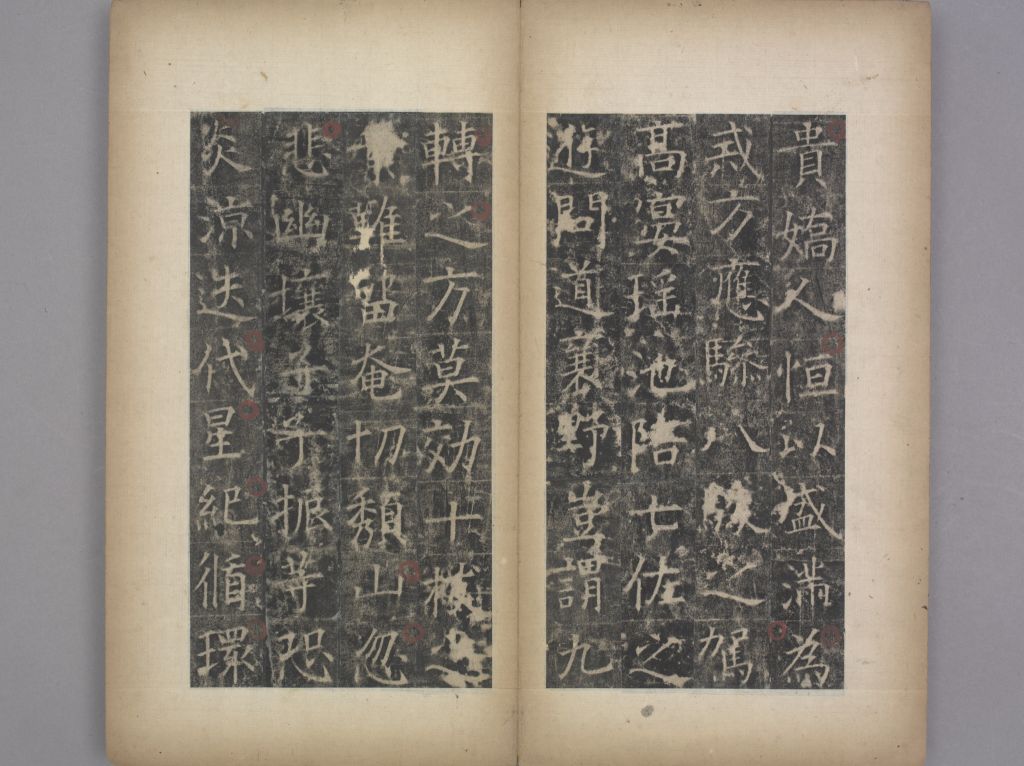 貴嬌人恒以盛滿為
戒方應驂八駿之駕
高宴瑤池陪七佐之
遊問道襄野豈謂九
轉之方莫効十枝之
難留奄切頹山忽
悲幽壤子子振等恐
炎涼迭代星紀循環